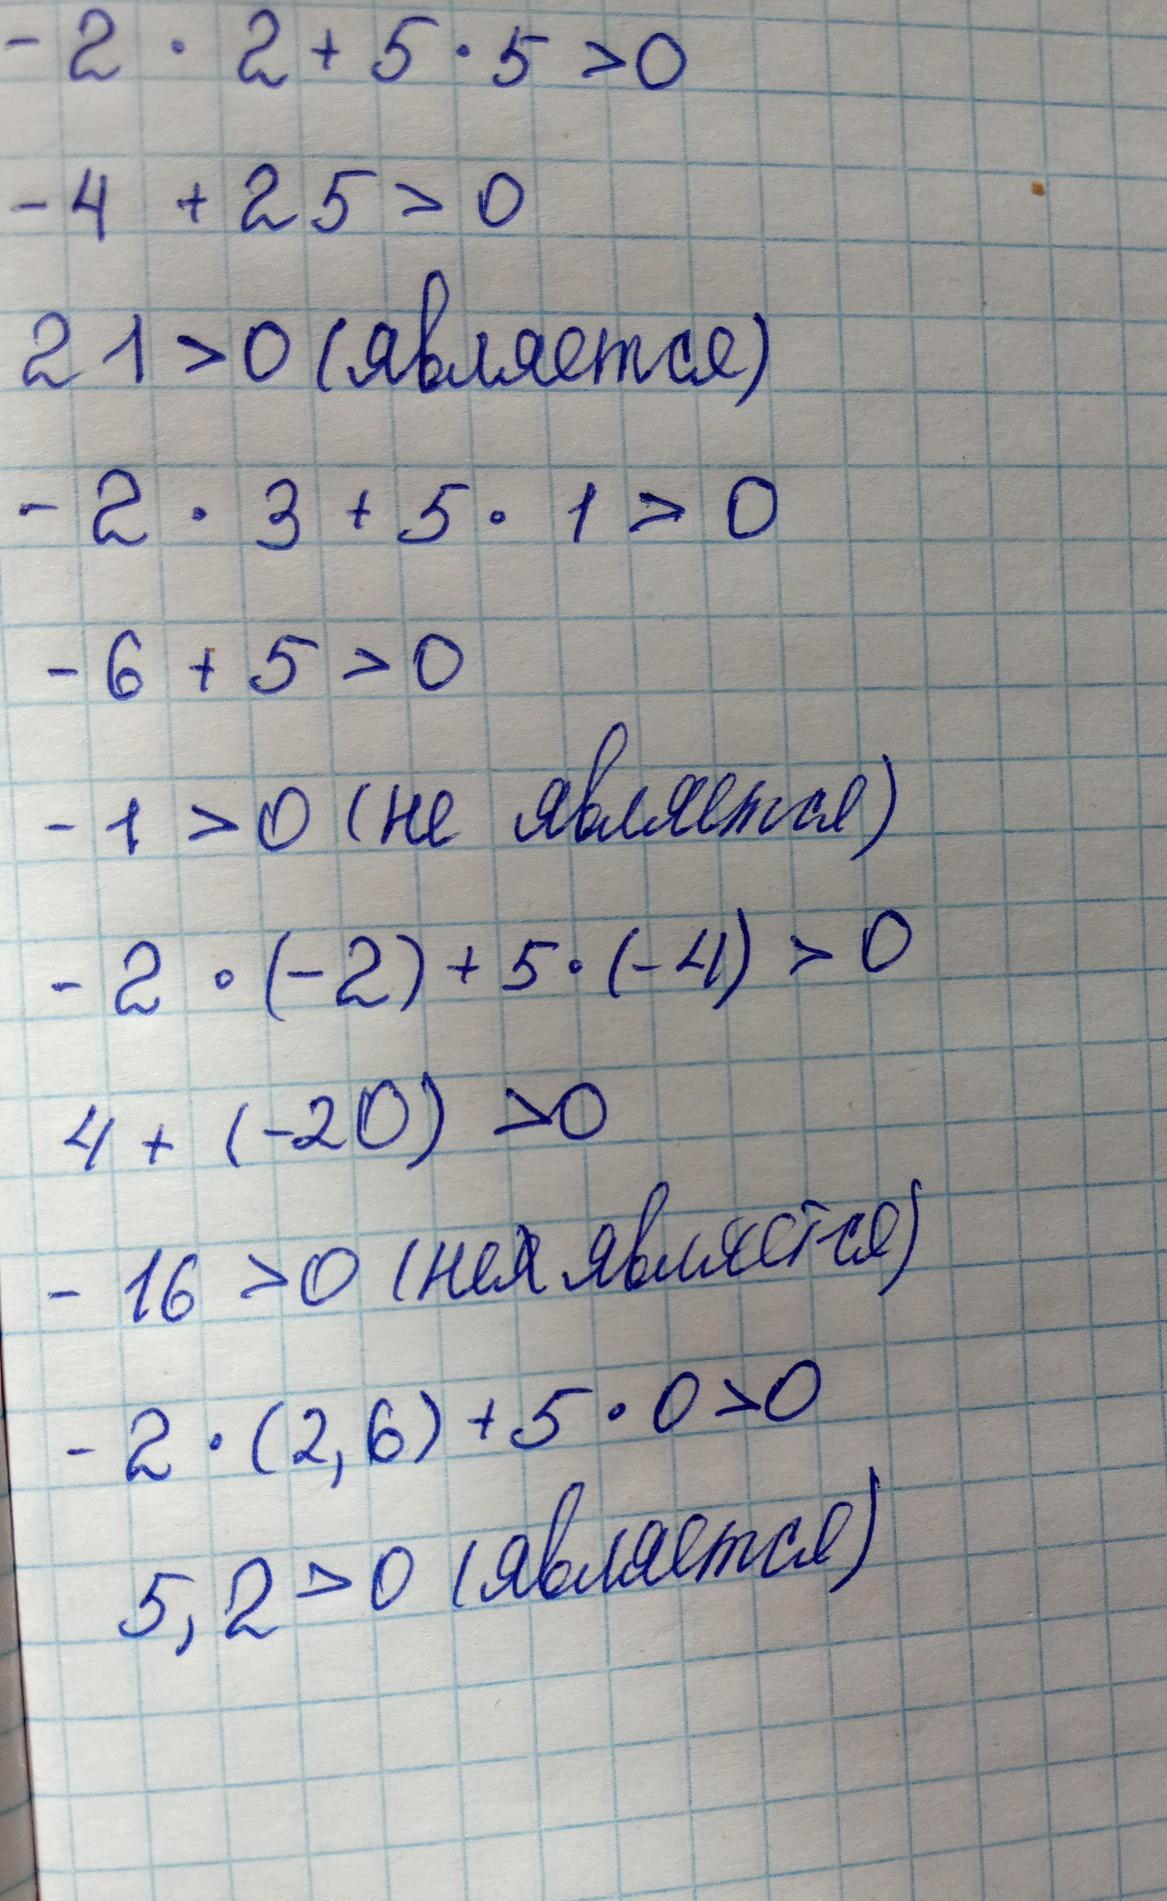 -2 · 2 + 5 · 5 > 0
-4 + 25 > 0
21 > 0 (является)
-2 · 3 + 5 · 1 > 0
-6 + 5 > 0
-1 > 0 (не является)
-2 · (-2) + 5 · (-4) > 0
4 + (-20) > 0
-16 > 0 (не является)
-2 · (2,6) + 5 · 0 > 0
5,2 > 0 (является)